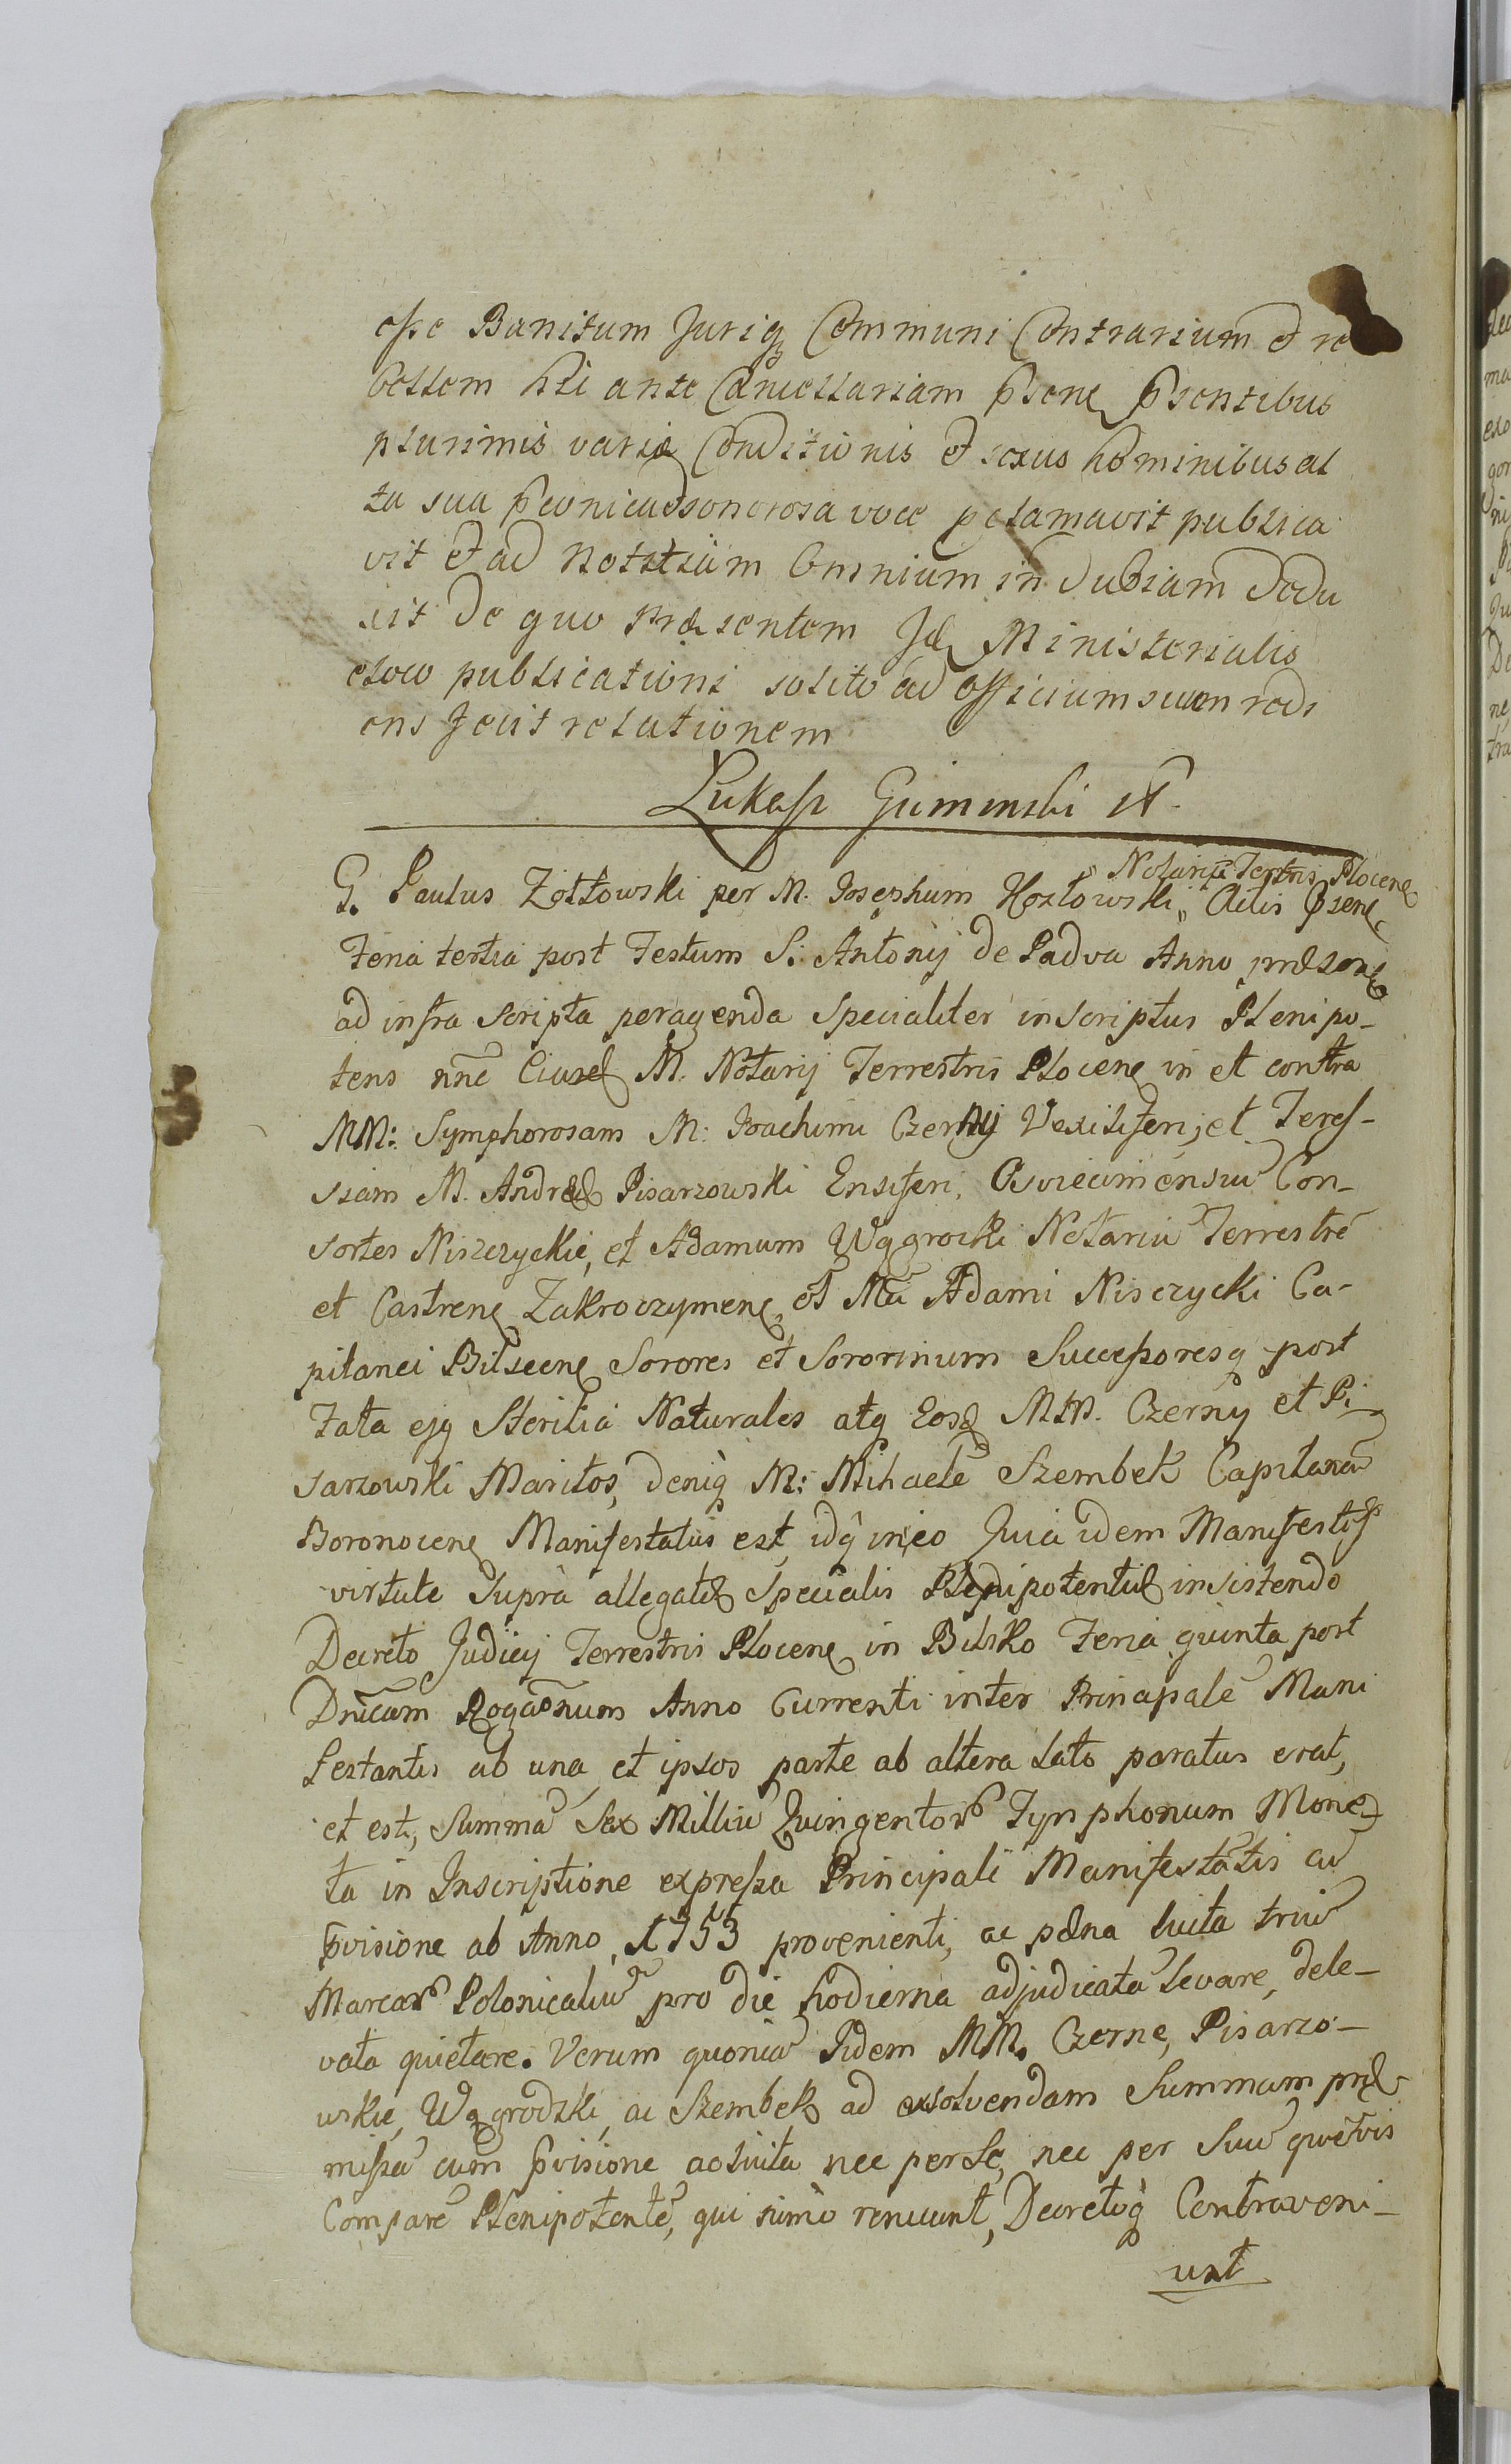 esse Banitum Juriq Communi Contrarium et re
bellem hic ante Cancellariam psenę psentibus
plurimis variæ Conditionis et sexus hominibus al
ta sua voce pclamavit publica
vit et ad Notitiam Omnium in dubiam dedu
xit De quo Præsentem Jdę Ministerialis
eloco publicationi solito ad officium suum redi
ens fecit relationem
Lukasz Guminski
Notarių Terrtris Plocenę
G. Paulus Zołtowski per M. Josephum Kozłowski „ Actis Psenę
Feria tertia post Festum S: Antonij de Padva Anno præsenę
ad infra scripta peragenda specialiter inscriptus Plenipo-
tens nnc M. Notarij Terrestris Plocenę in et contra
MM: Symphorosam M: Joachimi Czerny Vexiliferi, et Teres-
siam M. Andreæ Pisarzowski Ensiferi, Osviecimensiu Con-
sortes Niszczyckie, et Adamum Wągrocki Notariu Terrestre
et Castrenę Zakroczymenę, ol Mci Adami Nisczycki Ca-
pitanei Bilscenę Sorores et Sororinum Successoresq post
Fata ejq Sterilia Naturales atq Eosd MM. Czerny et Pi
sarzowski Maritos, deniq M: Mihaele Szembek Capitanu
Boronocenę Manifestatus est, idq in eo Quia idem Manifestes
virtute supra allegatæ specialis Plenipotentiæ insistendo
Decreto Judicij Terrestris Plocenę in Bilsko Feria quinta post
Dnicam Rogaonum Anno Currenti inter Principale Mani
festantes ab una, et ipsos parte ab altera lato paratus erat,
et est, Summa Sex Milliu Quingentor Tynphonum Mone
ta in Inscriptione expressa Principali Manifestatis cu
pvisione ab Anno 1753 provenienti, ac pæna luita triu
Marcar Polonicaliu pro die hodierna adjudicata levare, dele-
vata quietare. Verum quoniu Jidem MM. Czerne, Pisarzo-
wskie, Wągrodzki, ac Szembek ad exsolvendam Summam præ-
missa cum pvisione ac luita nec per se, nec per Suu quevis
Compare Plenipotente, qui nimo renuunt, Decretoq Contraveni-
unt